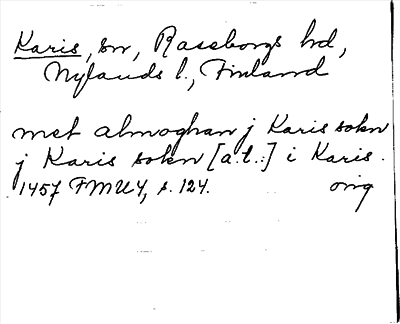 Karis, sn, Raseborgs hd,
Nylands l., Finland
met almoghan j Karis sokn
j Karis sokn [a.t.:] i Karis.
1457 FMU 4, s. 124. orig